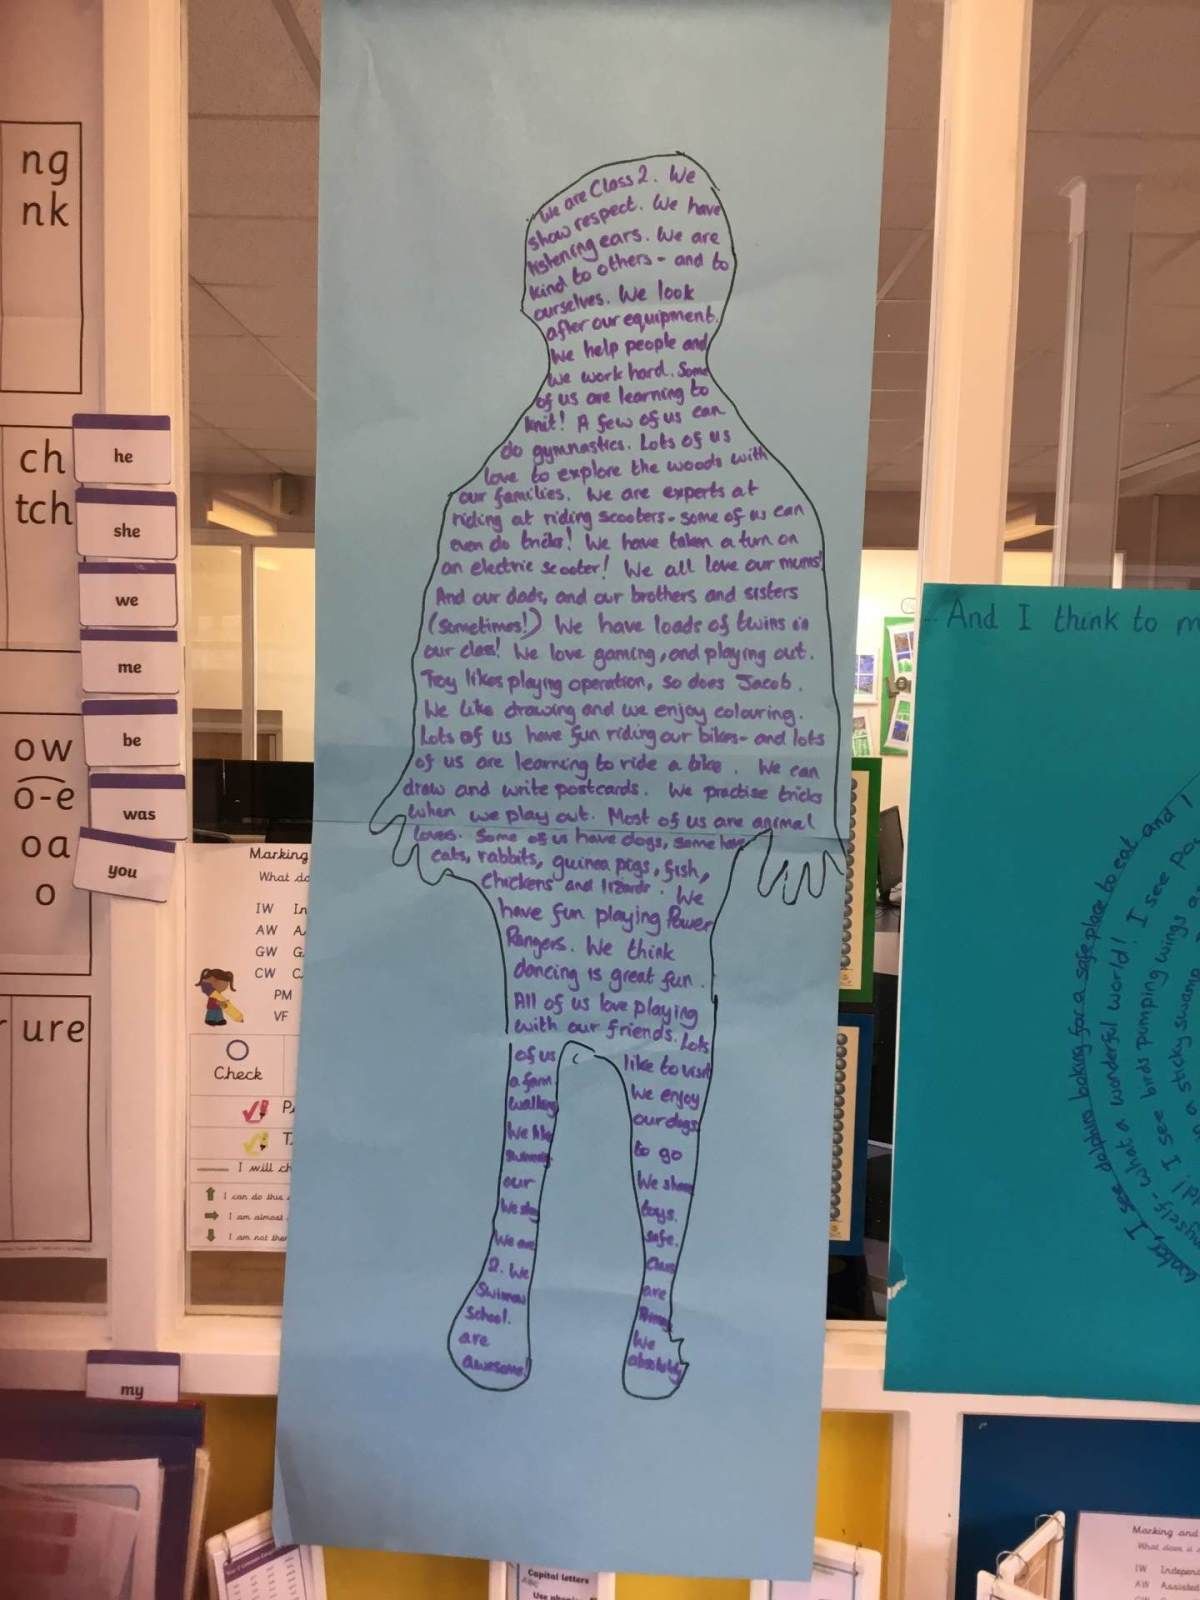 ng
nk
ch
tch
ow
o-e
oa
o
ure
he
she
we
me
be
was
you
my
We are Class 2. We
show respect. We have
listening ears. We are
kind to others - and to
ourselves. We look
after our equipment.
We help people and
we work hard. Some
of us are learning to
knit! A few of us can
do gymnastics. Lots of us
love to explore the woods with
our families. We are experts at
riding at riding scooters - some of us can
even do tricks! We have taken a turn on
an electric scooter! We all love our mums!
And our dads, and our brothers and sisters
(sometimes!) We have loads of twins in
our class! We love gaming, and playing out.
Troy likes playing operation, so does Jacob.
We like drawing and we enjoy colouring.
Lots of us have fun riding our bikes - and lots
of us are learning to ride a bike. We can
draw and write postcards. We practise tricks
when we play out. Most of us are animal
lovers. Some of us have dogs, some have
cats, rabbits, guinea pigs, fish,
chickens and lizards. We
have fun playing Power
Rangers. We think
dancing is great fun.
All of us love playing
with our friends. Lots
of us like to visit
a farm. We enjoy
walking our dogs
We like to go
We share
our toys.
We stay safe.
We are Class
2. We are
We
School.
are absolutely
awesome!
And I think to m
water, I see dolphins looking for a safe place to eat
myself - what a wonderful world! I see
I see birds pumping wings
in a sticky swamp
Marking
What do
IW In
AW A
GW G
CW C
PM
VF
Check
I will ch
I can do this
I am almost
I am not there
Capital letters
ABC
Marking and
What does it
IW Independ
AW Assisted